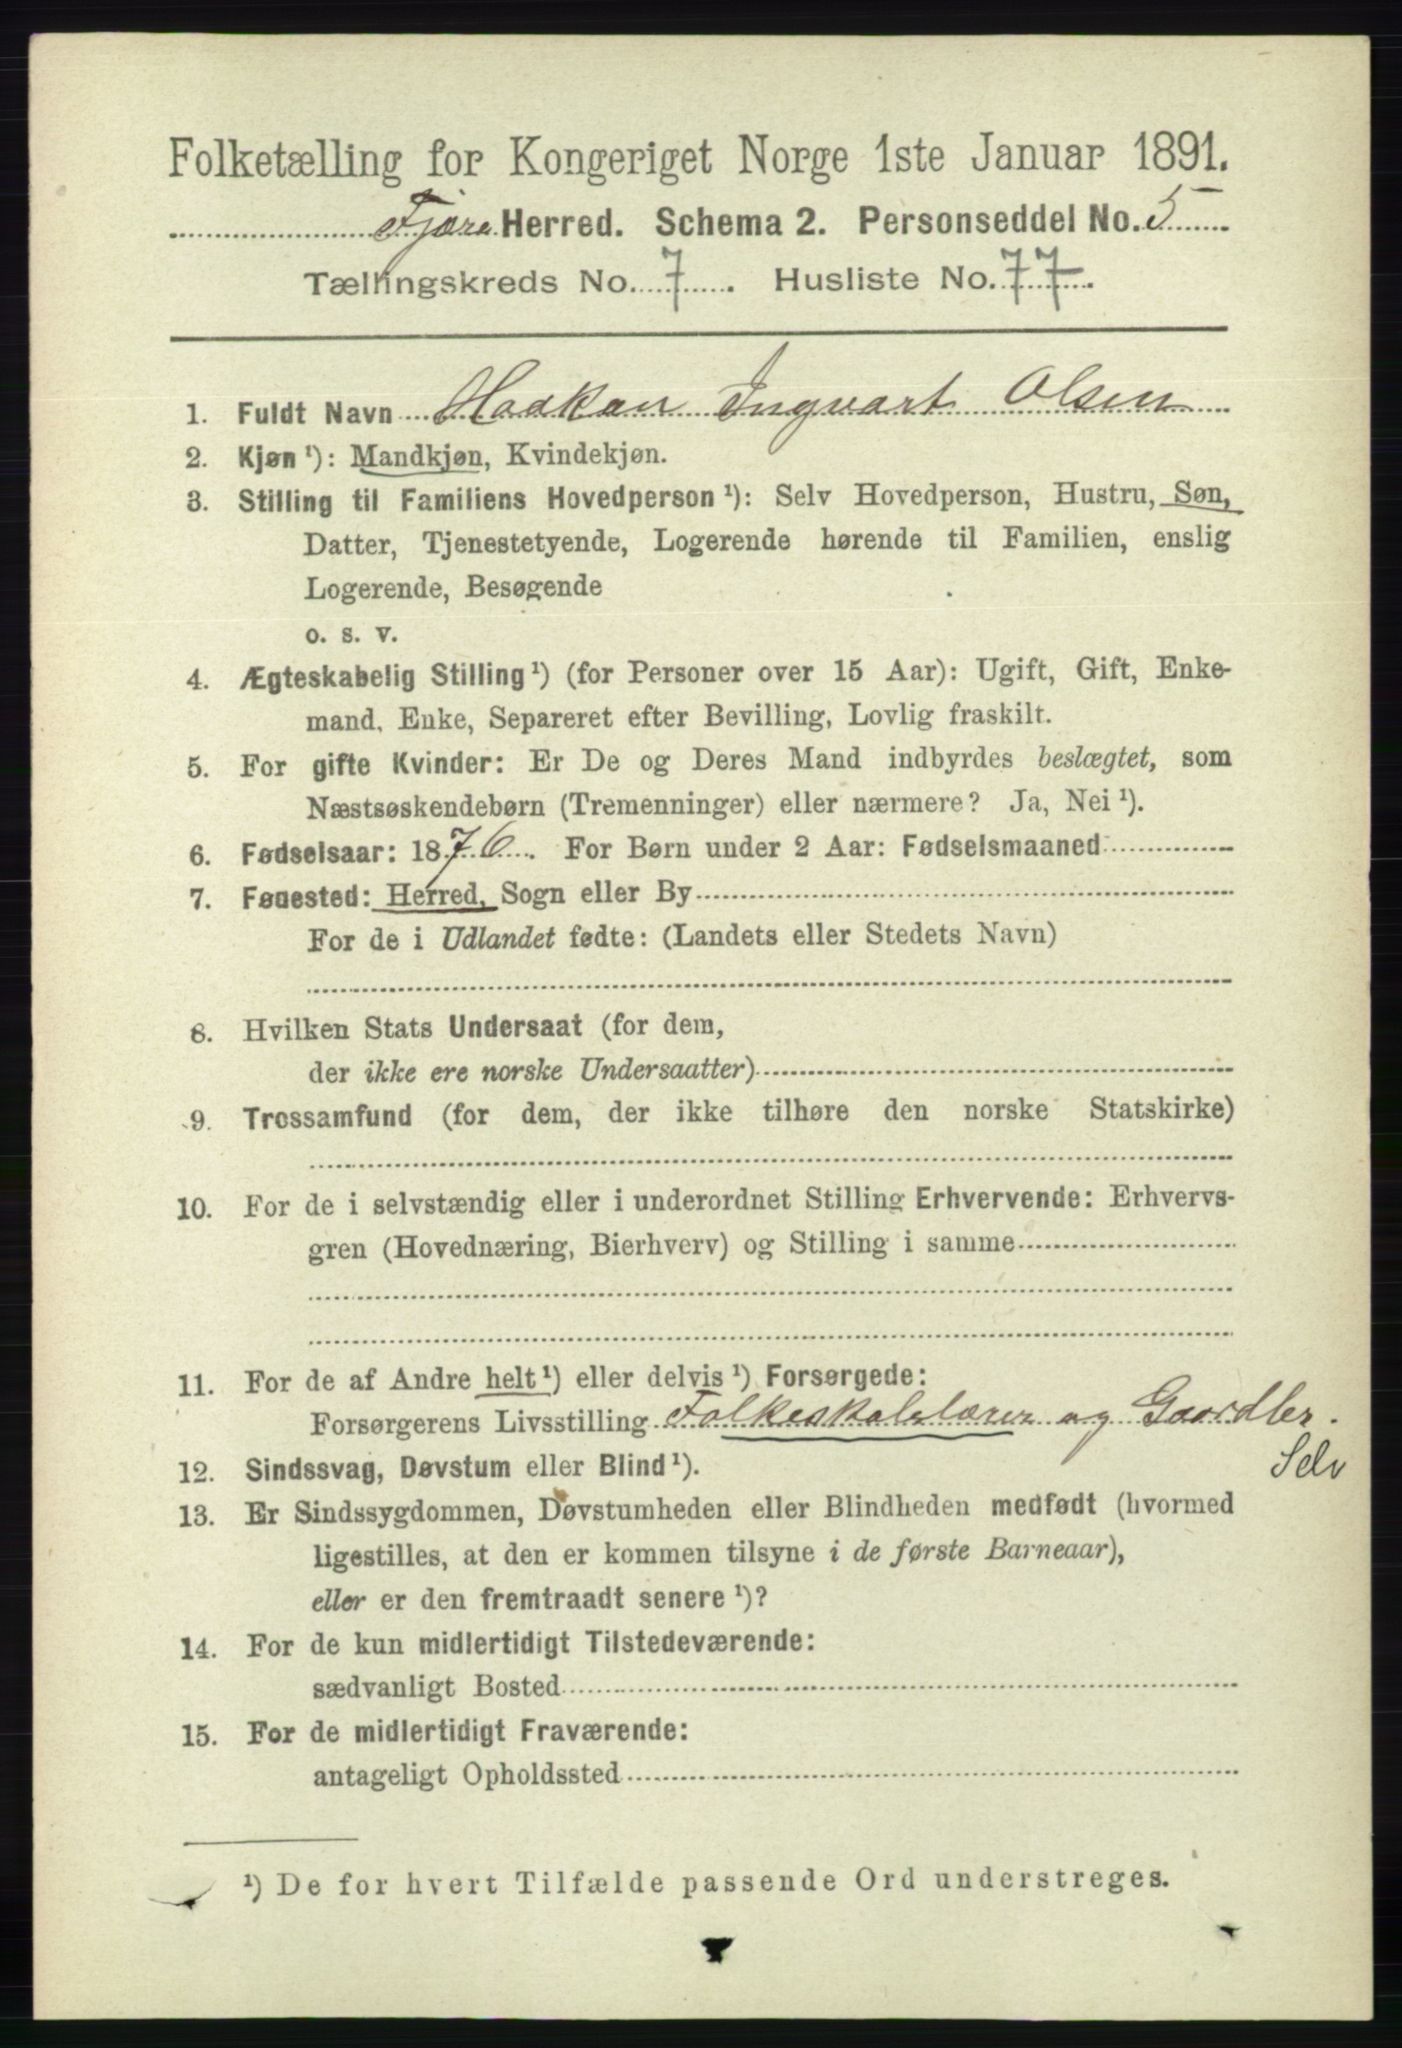 Folketælling for Kongeriget Norge 1ste Januar 1891.
Fjære Herred. Schema 2. Personseddel No. 5
Tællingskreds No. 7. Husliste No. 77.
1. Fuldt Navn Haakon Ingvart Olsen
2. Kjøn ¹): Mandkjøn, Kvindekjøn.
3. Stilling til Familiens Hovedperson ¹): Selv Hovedperson, Hustru, Søn,
Datter, Tjenestetyende, Logerende hørende til Familien, enslig
Logerende, Besøgende
o. s. v.
4. Ægteskabelig Stilling ¹) (for Personer over 15 Aar): Ugift, Gift, Enke-
mand, Enke, Separeret efter Bevilling, Lovlig fraskilt.
5. For gifte Kvinder: Er De og Deres Mand indbyrdes beslægtet, som
Næstsøskendebørn (Tremenninger) eller nærmere? Ja, Nei ¹).
6. Fødselsaar: 1876. For Børn under 2 Aar: Fødselsmaaned
7. Fødested: Herred, Sogn eller By
For de i Udlandet fødte: (Landets eller Stedets Navn)
8. Hvilken Stats Undersaat (for dem,
der ikke ere norske Undersaatter)
9. Trossamfund (for dem, der ikke tilhøre den norske Statskirke)
10. For de i selvstændig eller i underordnet Stilling Erhvervende: Erhvervs-
gren (Hovednæring, Bierhverv) og Stilling i samme
11. For de af Andre helt ¹) eller delvis ¹) Forsørgede:
Forsørgerens Livsstilling Folkeskolelærer og Gaardbr.
Selv
12. Sindssvag, Døvstum eller Blind ¹).
13. Er Sindssygdommen, Døvstumheden eller Blindheden medfødt (hvormed
ligestilles, at den er kommen tilsyne i de første Barneaar),
eller er den fremtraadt senere ¹)?
14. For de kun midlertidigt Tilstedeværende:
sædvanligt Bosted
15. For de midlertidigt Fraværende:
antageligt Opholdssted
¹) De for hvert Tilfælde passende Ord understreges.